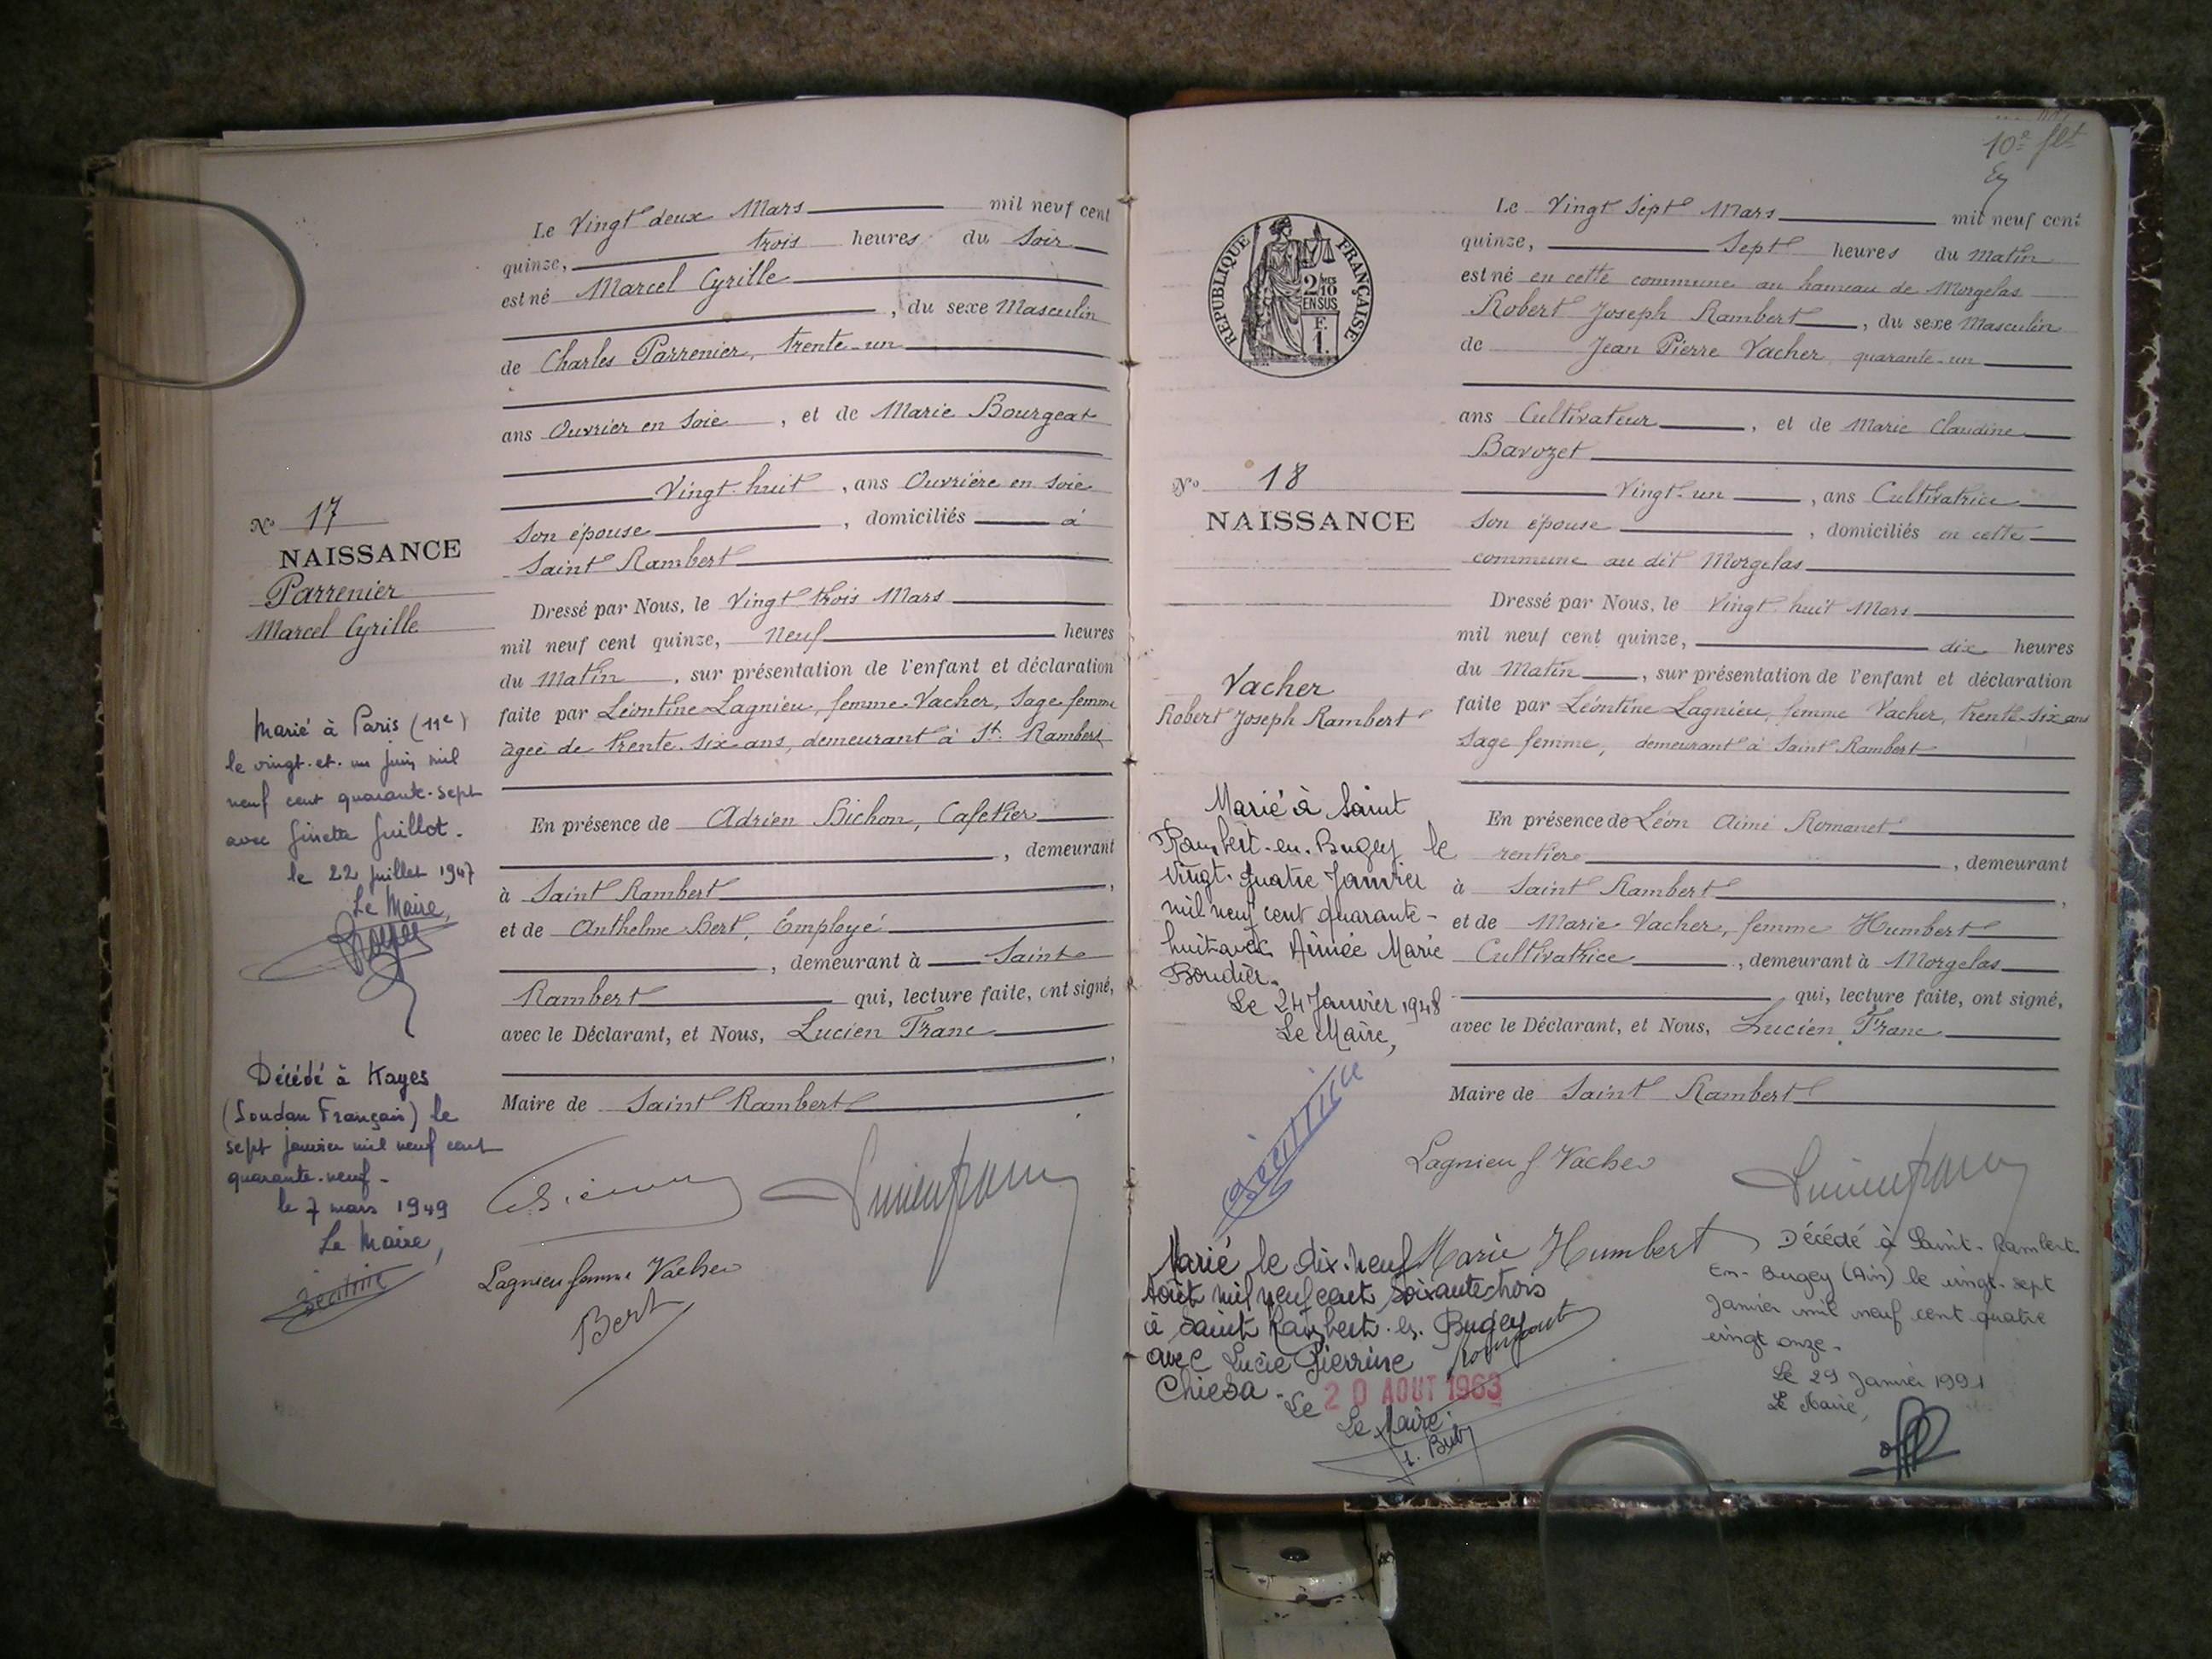 Le Vingt deux Mars mil neuf cent
quinze, trois heures du Soir
est né Marcel Cyrille
, du sexe Masculin
de Charles Parrenier, trente-un
ans Ouvrier en Soie, et de Marie Bourgeat
Vingt-huit, ans Ouvrière en Soie
Son épouse, domiciliés à
Saint Rambert
Dressé par Nous, le Vingt trois Mars
mil neuf cent quinze, Neuf heures
du Matin, sur présentation de l'enfant et déclaration
faite par Léontine Lagnieu, femme Vacher, Sage femme
âgée de trente-six ans, demeurant à St. Rambert
En présence de Adrien Bichon, Cafetier
, demeurant
à Saint Rambert,
et de Anthelme Bert, Employé
, demeurant à Saint
Rambert qui, lecture faite, ont signé,
avec le Déclarant, et Nous, Lucien Franc
,
Maire de Saint Rambert
Lagnieu femme Vacher
Bert
No 17
NAISSANCE
Parrenier
Marcel Cyrille
Marié à Paris (11e)
le vingt-et-un juin mil
neuf cent quarante-sept
avec Ginette Guillot.
le 22 juillet 1947
Le Maire,
Décédé à Kayes
(Soudan Français) le
sept janvier mil neuf cent
quarante-neuf-
le 7 mars 1949
Le Maire,
10e flt
RÉPUBLIQUE FRANÇAISE
2/10 EN SUS
F. 1.
No 18
NAISSANCE
Vacher
Robert Joseph Rambert
Le Vingt Sept Mars mil neuf cent
quinze, Sept heures du Matin
est né en cette commune au hameau de Morgelas
Robert Joseph Rambert, du sexe Masculin
de Jean Pierre Vacher, quarante-un
ans Cultivateur, et de Marie Claudine
Bavozet
Vingt-un, ans Cultivatrice
Son épouse, domiciliés en cette
commune au dit Morgelas
Dressé par Nous, le Vingt-huit Mars
mil neuf cent quinze, dix heures
du Matin, sur présentation de l'enfant et déclaration
faite par Léontine Lagnieu, femme Vacher, trente-six ans
Sage femme, demeurant à Saint Rambert
En présence de Léon Aimé Romanet
rentier, demeurant
à Saint Rambert,
et de Marie Vacher, femme Humbert
Cultivatrice, demeurant à Morgelas
qui, lecture faite, ont signé,
avec le Déclarant, et Nous, Lucien Franc
Maire de Saint Rambert
Lagnieu f Vacher
Marie Humbert
Marié à Saint
Rambert-en-Bugey le
vingt-quatre Janvier
mil neuf cent quarante-
huit avec Aimée Marie
Boudier.
Le 24 Janvier 1948
Le Maire,
Marié le dix-neuf
Août mil neuf cent soixante trois
à Saint Rambert-en-Bugey
avec Lucie Pierrine
Chiesa.- Le 20 AOUT 1963
Le Maire.
Décédé à Saint-Rambert
En-Bugey (Ain) le vingt-sept
Janvier mil neuf cent quatre
vingt onze.
Le 29 Janvier 1991
Le Maire,